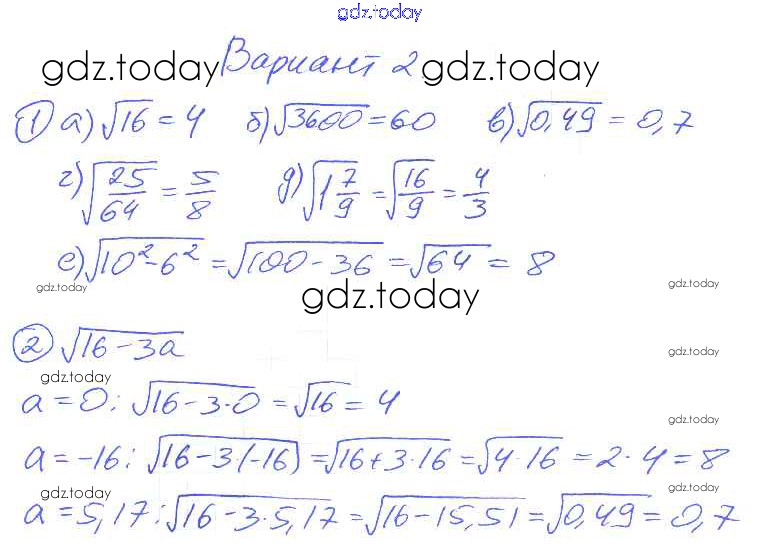 gdz.today
gdz.today Вариант 2 gdz.today
① а) √16 = 4 б) √3600 = 60 в) √0,49 = 0,7
г) √(25/64) = 5/8 д) √(1 7/9) = √(16/9) = 4/3
е) √(10² - 6²) = √(100 - 36) = √64 = 8
gdz.today gdz.today gdz.today
② √(16 - 3a)
gdz.today
gdz.today
a = 0: √(16 - 3·0) = √16 = 4
gdz.today
a = -16: √(16 - 3(-16)) = √(16 + 3·16) = √(4·16) = 2·4 = 8
gdz.today gdz.today
a = 5,17: √(16 - 3·5,17) = √(16 - 15,51) = √0,49 = 0,7